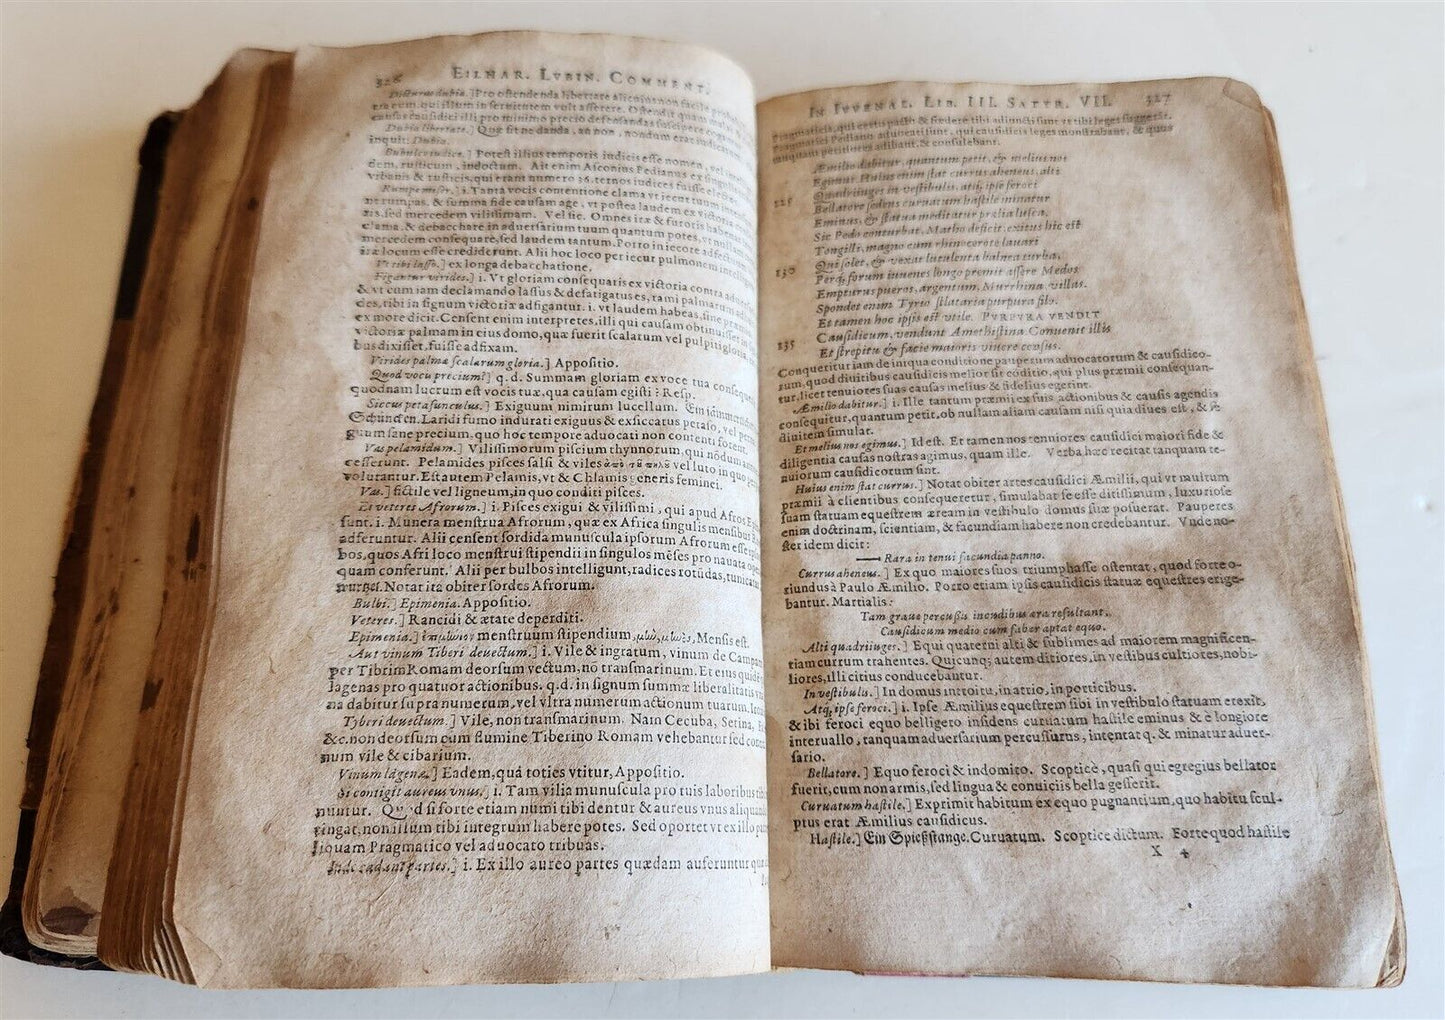 326 EILHAR. LVBIN. COMMENT.
Discursus dubia.] Pro ostendenda libertate alicuius non facile
tra eum qui illum in servitutem vult asserere. Ostendit quam
causas causidici illi pro minimo precio defendendas suscipere
Dubia libertate.] Quæ sit ne danda, an non, nondum erat indicatum.
inquit: Dubia.
Bubulco iudice.] Potest illius temporis iudicis esse nomen, vel
dem, rusticum, indoctum. Ait enim Asconius Pedianus ex singulis
vrbanis & rusticis, qui erant numero 36. ternos iudices fuisse
Rumpe miser.] i. Tanta vocis contentione clama vt iecur tuum
ne rumpas, & summa fide causam age, vt postea laudem ex victoria
zis, sed mercedem vilissimam. Vel sic. Omnes iræ & furoris habenas
clama, & debacchare in adversarium tuum quantum potes, vt nullam
mercedem consequare, sed laudem tantum. Porro in iecore adfectuum
iræ locum esse crediderunt. Alii hoc loco per iecur pulmonem intelligunt
Vt tibi lasso.] ex longa debacchatione.
Figantur virides.] i. Vt gloriam consequaris ex victoria contra
& vt cum iam declamando lassus & defatigatus es, tami palmarum
des, tibi in signum victoriæ adfigantur. i. vt laudem habeas, sine
ex more dicit. Censent enim interpretes, illi qui causam obtinuisset
victoriæ palmam in eius domo, quæ fuerit scalarum vel pulpiti gloria,
bus dixisset, fuisse adfixam.
Virides palmæ scalarum gloria.] Appositio.
Quod vocu precium?] q. d. Summam gloriam ex voce tua
quodnam lucrum est vocis tuæ, qua causam egisti? Resp.
Siccus petasunculus.] Exiguum nimirum lucellum. Ein
Schüncken. Laridi fumo indurati exiguus & exsiccatus petaso, vel
guum sane precium, quo hoc tempore aduocati non contenti forent.
Vas pelamidum.] Vilissimorum piscium thynnorum, qui nõdum
cesserunt. Pelamides pisces salsi & viles ἀπὸ τῦ πηλῦ vel luto in quo
volurantur. Est autem Pelamis, vt & Chlamis generis feminei.
Vas.] fictile vel ligneum, in quo conditi pisces.
Et veteres Afrorum.] i. Pisces exigui & vilissimi, qui apud Afros
sunt. i. Munera menstrua Afrorum, quæ ex Africa singulis mensibus
adferuntur. Alii censent sordida munuscula ipsorum Afrorum esse
bos, quos Afri loco menstrui stipendii in singulos mẽses pro nauata
quam conferunt. Alii per bulbos intelligunt, radices rotũdas,
wurtzel. Notat ita obiter sordes Afrorum.
Bulbi.] Epimenia. Appositio.
Veteres.] Rancidi & ætate deperditi.
Epimenia.] ἐπιμώιον menstruum stipendium, Mensis est.
Aut vinum Tiberi deuectum.] i. Vile & ingratum, vinum de
per Tibrim Romam deorsum vectum, nõ transmarinum. Et eius
lagenas pro quatuor actionibus. q.d. in signum summæ liberalitatis
na dabitur supra numerum, vel vltra numerum actionum tuarum.
Tiberi deuectum.] Vile, non transmarinum. Nam Cecuba, Setina,
&c. non deorsum cum flumine Tiberino Romam vehebantur sed
num vile & cibarium.
Vinum lagenæ.] Eadem, qua toties vtitur, Appositio.
Si contigit aureus vnus.] i. Tam vilia munuscula pro tuis laboribus
nuntur. Quod si forte etiam numi tibi dentur & aureus vnus
tingat, non illum tibi integrum habere potes. Sed oportet vt ex illo
liquam Pragmatico vel aduocato tribuas.
Inde cadunt partes.] i. Ex illo aureo partes quædam auferuntur
IN IVVENAL. LIB. III. SATYR. VII. 327
Pragmaticis, qui certis pactis & fœdere tibi adiuncti sunt vt tibi leges suggerãt.
Pragmatici Pediano aduocati sunt, qui causidicis leges monstrabant, & quos
tanquam petitiores adibant, & consulebant.
Æmilio dabitur, quantum petit, & melius nos
Egimus. Huius enim stat currus aheneus, alti
Quadriiuges in vestibulis, atq; ipse feroci
125 Bellatore sedens curuatum hastile minatur
Eminus, & statua meditatur prælia lusca.
Sic Pedo conturbat, Matho deficit, exitus hic est
Tongilli, magno cum rhinocerote lauari
Qui solet, & vexat lutulenta balnea turba,
130 Perq; forum iuuenes longo premit assere Medos
Empturus pueros, argentum, Murrhina, villas.
Spondet enim Tyrio stlataria purpura filo.
Et tamen hoc ipsis est vtile. PVRPVRA VENDIT
Causidicum, vendunt Amethistina Conuenit illis
135 Et strepitu & facie maioris viuere census.
Conqueritur iam de iniqua conditione pauperum aduocatorum & causidico-
rum, quod diuitibus causidicis melior sit coditio, qui plus præmii consequan-
tur, licet tenuiores suas causas melius & fidelius egerint.
Æmilio dabitur.] i. Ille tantum præmii ex suis actionibus & causis agendis
consequitur, quantum petit, ob nullam aliam causam nisi quia diues est, & se
diuitem simulat.
Et melius nos egimus.] Id est. Et tamen nos tenuiores causidici maiori fide &
diligentia causas nostras agimus, quam ille. Verba hæc recitat tanquam te-
nuiorum causidicorum sint.
Huius enim stat currus.] Notat obiter artes causidici Æmilii, qui vt multum
præmii à clientibus consequeretur, simulabat se esse ditissimum, luxuriose
suam statuam equestrem æream in vestibulo domus suæ posuerat. Pauperes
enim doctrinam, scientiam, & facundiam habere non credebantur. Vnde no-
ster idem dicit:
Rara in tenui facundia panno.
Currus aheneus.] Ex quo maiores suos triumphasse ostentat, quod forte o-
riundus à Paulo Æmilio. Porro etiam ipsis causidicis statuæ equestres erige-
bantur. Martialis:
Tam graue percussis incudibus æra resultant,
Causidicum medio cum faber aptat equo.
Alti quadriiuges.] Equi quaterni alti & sublimes ad maiorem magnificen-
tiam currum trahentes. Quicunq; autem ditiores, in vestibus cultiores, nobi-
liores, illi citius conducebantur.
In vestibulis.] In domus introitu, in atrio, in porticibus.
Atq; ipse feroci.] i. Ipse Æmilius equestrem sibi in vestibulo statuam erexit,
& ibi feroci equo belligero insidens curuatum hastile eminus & è longiore
interuallo, tanquam aduersarium percussurus, intentat q. & minatur aduer-
sario.
Bellatore.] Equo feroci & indomito. Scoptice, quasi qui egregius bellator
fuerit, cum non armis, sed lingua & conuiciis bella gesserit.
Curuatum hastile.] Exprimit habitum ex equo pugnantium, quo habitu scul-
ptus erat Æmilius causidicus.
Hastile.] Ein Spießstange. Curuatum. Scoptice dictum. Forte quod hastile
X 4